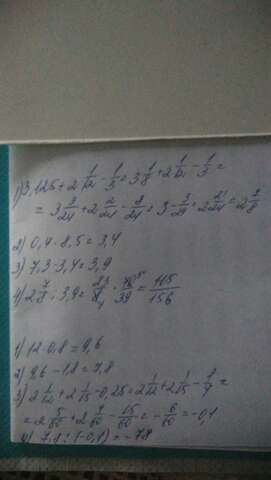 1) 3,125 + 2 1/12 - 1/3 = 3 1/8 + 2 1/12 - 1/3 =
= 3 3/24 + 2 2/24 - 8/24 = 3 - 3/24 = 2 21/24 = 2 7/8
2) 0,4 · 8,5 = 3,4
3) 7,3 - 3,4 = 3,9
4) 2 7/8 : 3,9 = 23/8 · 10/39 = 115/156
1) 12 · 0,8 = 9,6
2) 9,6 - 1,8 = 7,8
3) 2 1/12 + 2 1/15 - 0,25 = 2 1/12 + 2 1/15 - 1/4 =
= 2 5/60 + 2 4/60 - 15/60 = - 6/60 = -0,1
4) 7,8 : (-0,1) = -78